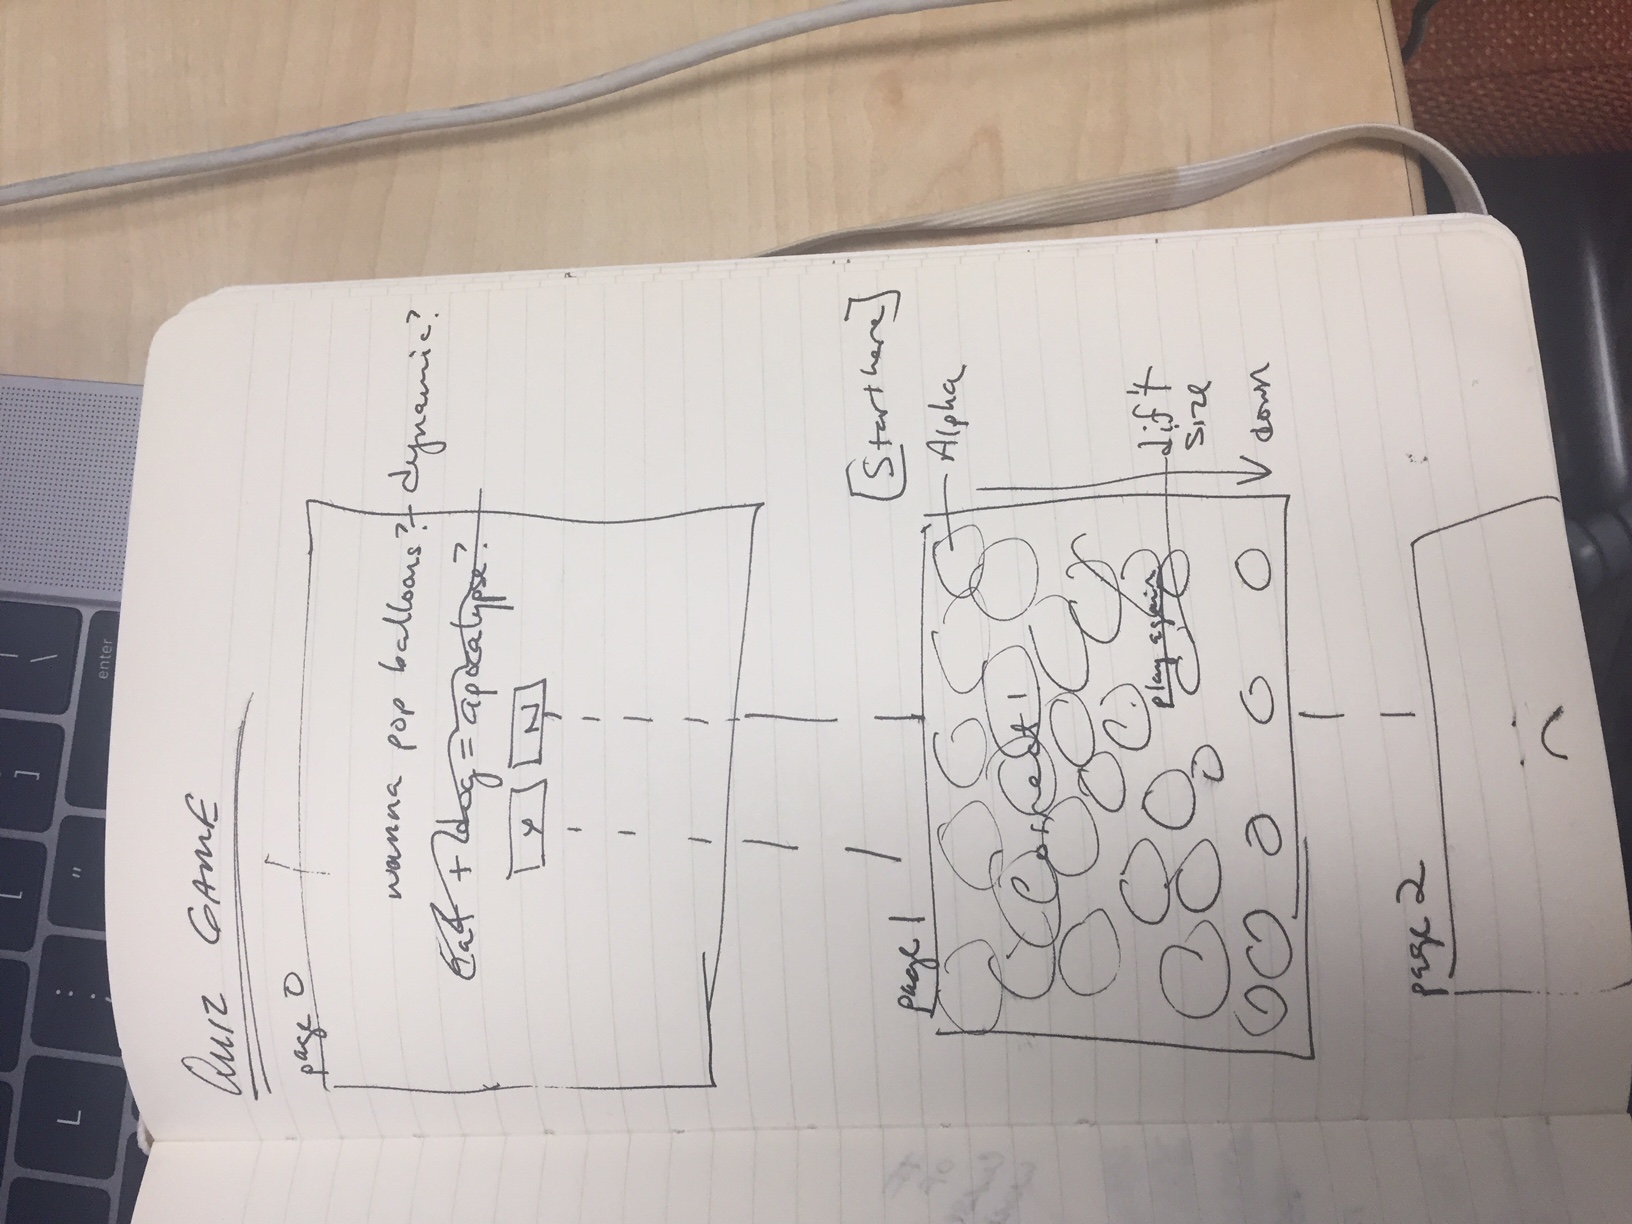 [
]
\
L
:
;
"
enter
QUIZ GAME
page 0
wanna pop balloons? dynamic?
Cat + dog = apocalypse?
Y N
[Start here]
page 1
Alpha
Correct!
play again
dif't
size
down
page 2